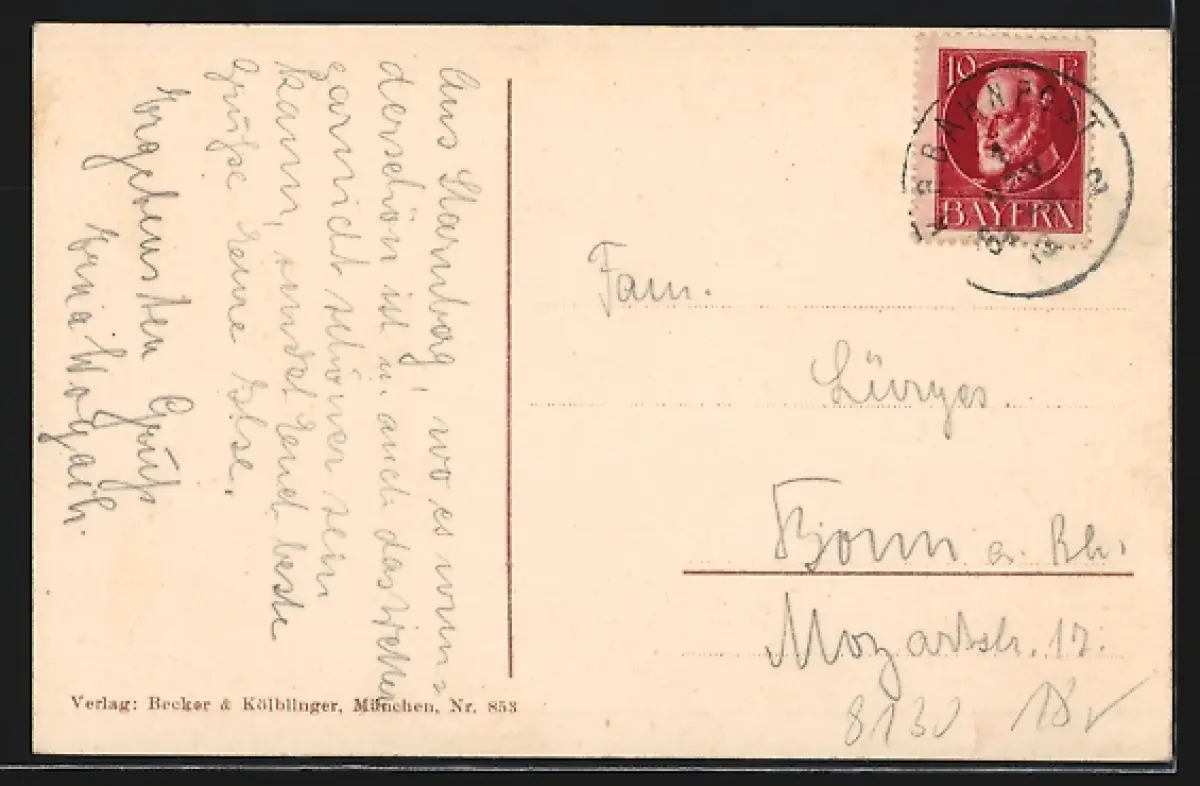 Aus Starnberg, wo es wun=
derschön ist u. auch das Wetter
garnicht schöner sein
kann, sendet Euch beste
Grüße Eure Else.
Ergebensten Gruß
Erna
10 P
BAYERN
BAHNPOST
Fam.
Lürges.
Bonn a. Rh.
Mozartstr. 17.
8130 18
Verlag: Becker & Kölblinger, München, Nr. 853